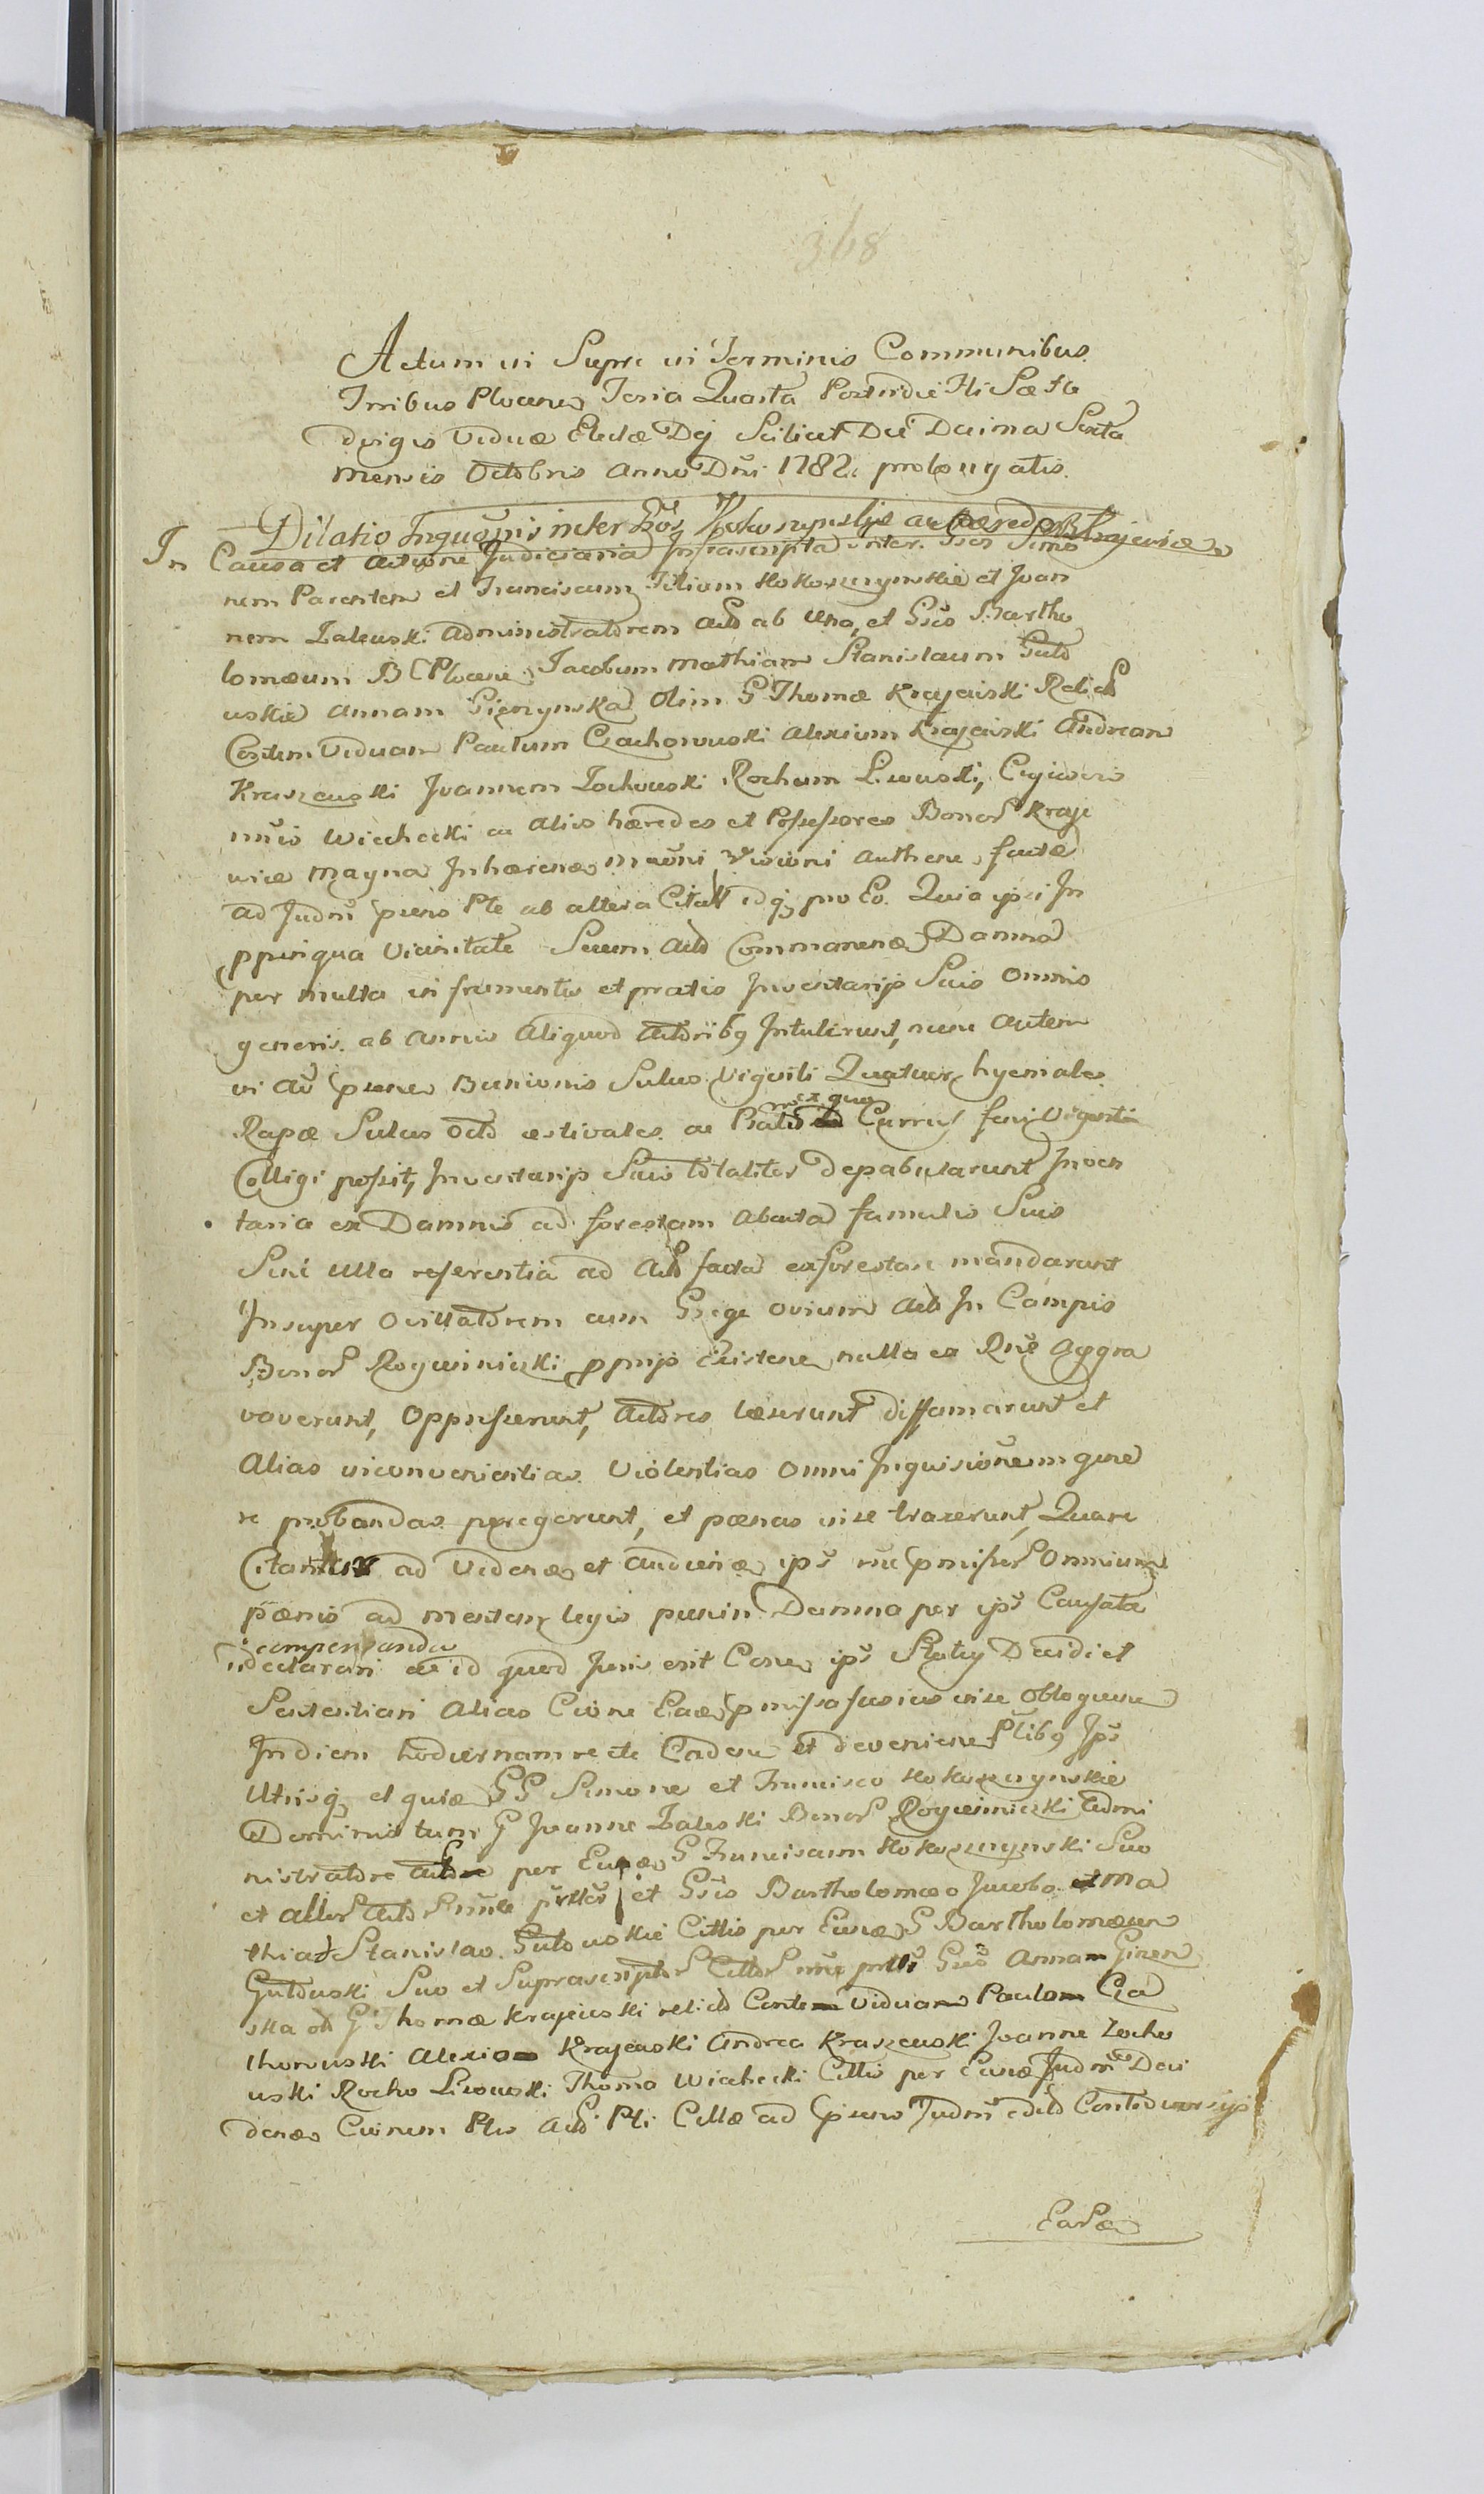 368
Actum in Supre in Terminis Communibus
Trribus Plocene Feria Quarta Postridie Fti Sæ He
dvigis Viduæ Electæ Dej Scilicet Die Decima Sexta
mensis Octobris Anno Dñi 1782 prolongatis.
Dilatio Inquõnis inter Gsos Kokoszynskie ac hæred B Krajewice
In Causa et Actione Judiciaria Infrascripta inter Gsos Simo
nem Parentem et Franciscum Filium Kokoszczynskie et Joan
nem Zaleuski Administratorem Act ab Una, et Gsos Bartho
lomæum B Plocene Jacobum Mathiam Stanislaum Guto
uskie Annam Gięzynska Olim G Thomæ Krajeuski Relict
Contem Viduam Paulum Czachorouski Alexium Krajeuski Andream
Kraszeuski Joannem Zochouski Rochum Lisouski,
Wiechecki ac Alios hæredes et Possessores Bonor Kraje
uice Magna Inhærene Authene factæ
ad Judm psens Pte ab altera Citat idq pro Eo. Quia ipsi In
ppinqua Vicinitate Secum Act Commanene Damna
per multa in frumentis et pratis Inventarijs Suis Omnis
generis ab Annis Aliquod Actoribq Intulerunt, nunc Autem
in Aũ psene Bunionis Sulcos Viginti Quatuor hyemales
Rapæ Sulcos Octo æstivales ac Prato ex quo Currus feni Viginti
Colligi possit, Inventarijs Suis totaliter depabularunt Inven
taria ex Damnis ad forestam Abacta famulis Suis
Sine Ulla referentia ad Act facta exforestare mandarunt
Insuper Ovillatorem cum Grege Ovium Act In Campis
Bonor Rogieniczki pprijs Existene nulla ex Rne Aggra
vaverunt, Oppresserunt, Actores læserunt diffamarunt et
Alias inconvenientias Violentias Omni Inquisitione in gene
re probandas peregerunt, et pœnas in se traxerunt, Quare
Citantur ad Videnæ et Audienæ ipš rne pmissor Omnium
pœnis ad mentem legis puniri Damna per ipš Causata
compensanda
declarari ac id quod Juris erit Cone ipš Statuj Decidi et
Sententiari Alias Citõne Eaæ pmissa fusius in se Obloquene
In diem hodiernam recte Cadene et devenient Ptibq Ipš
Utrisq et quidæ GG Simone et Francisco Kokoszczynskie
et Dominis tum G Joanne Zaleski Bonor Rogieniczki Admi
nistratore Act per Eunæ G Franciscum Kokoszczynski Suo
et Alior Actor nne et Gsis Bartholomæo Jacobo et Ma
thia Stanislao Gutouskie Cittis per Eunæ G Bartholomæum
Gutouski Suo et Suprascriptor Cittor nne Gsis Anna Giezen
ska G Thomæ Krajeuski relicta Conte Vidua Paulo Cza
chorouski Alexio Krajeuski Andrea Kraszeuski Joanne Zocho
uski Rocho Lisouski Thoma Wiechecki Cittis per Eunæ Judm Deci
denæ Cuinem Ptes Act Pti Cittæ ad psens Judm edito
Earæ